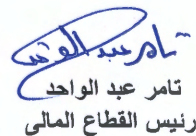 تامر عبد الواحد
تامر عبد الواحد
رئيس القطاع المالى